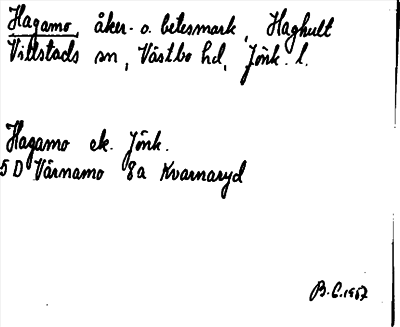 Hagamo, åker- o. betesmark, Haghult
Villstads sn, Västbo hd, Jönk. l.
Hagamo ek. Jönk.
5 D Värnamo 8a Kvarnaryd
B. C. 1967